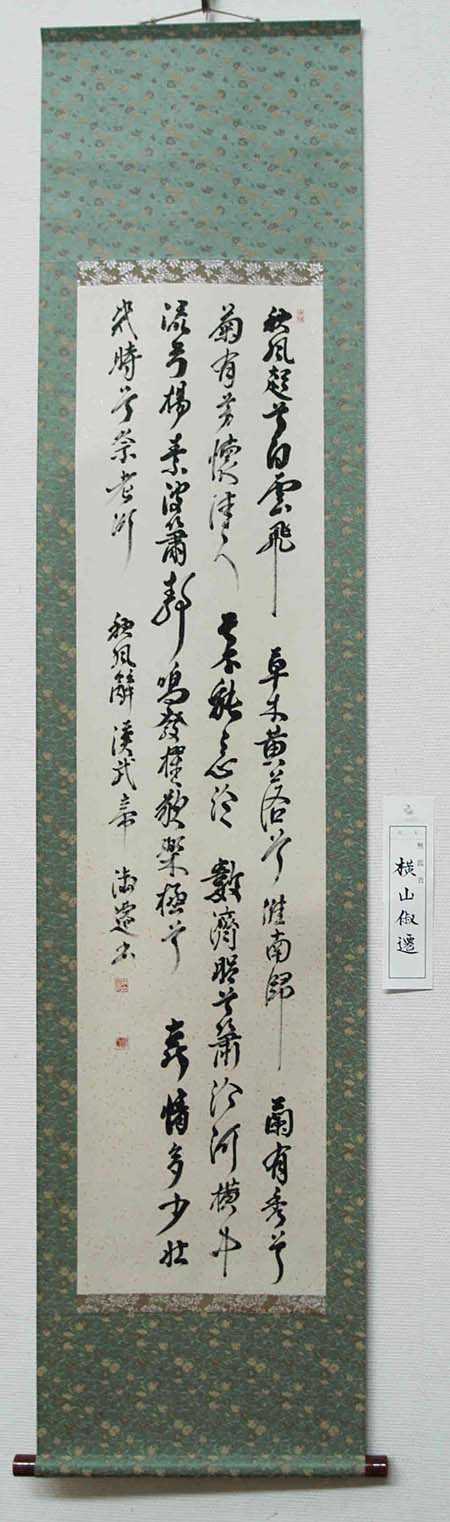 秋風起兮白雲飛 草木黄落兮雁南歸 蘭有秀兮
菊有芳懷佳人 兮不能忘泛 濟 兮 河横中
流兮揚素波簫鼓鳴發櫂歌樂極兮 哀情多少壯
幾時兮奈老何 秋風辭 漢武帝 俶遷書
横山俶遷